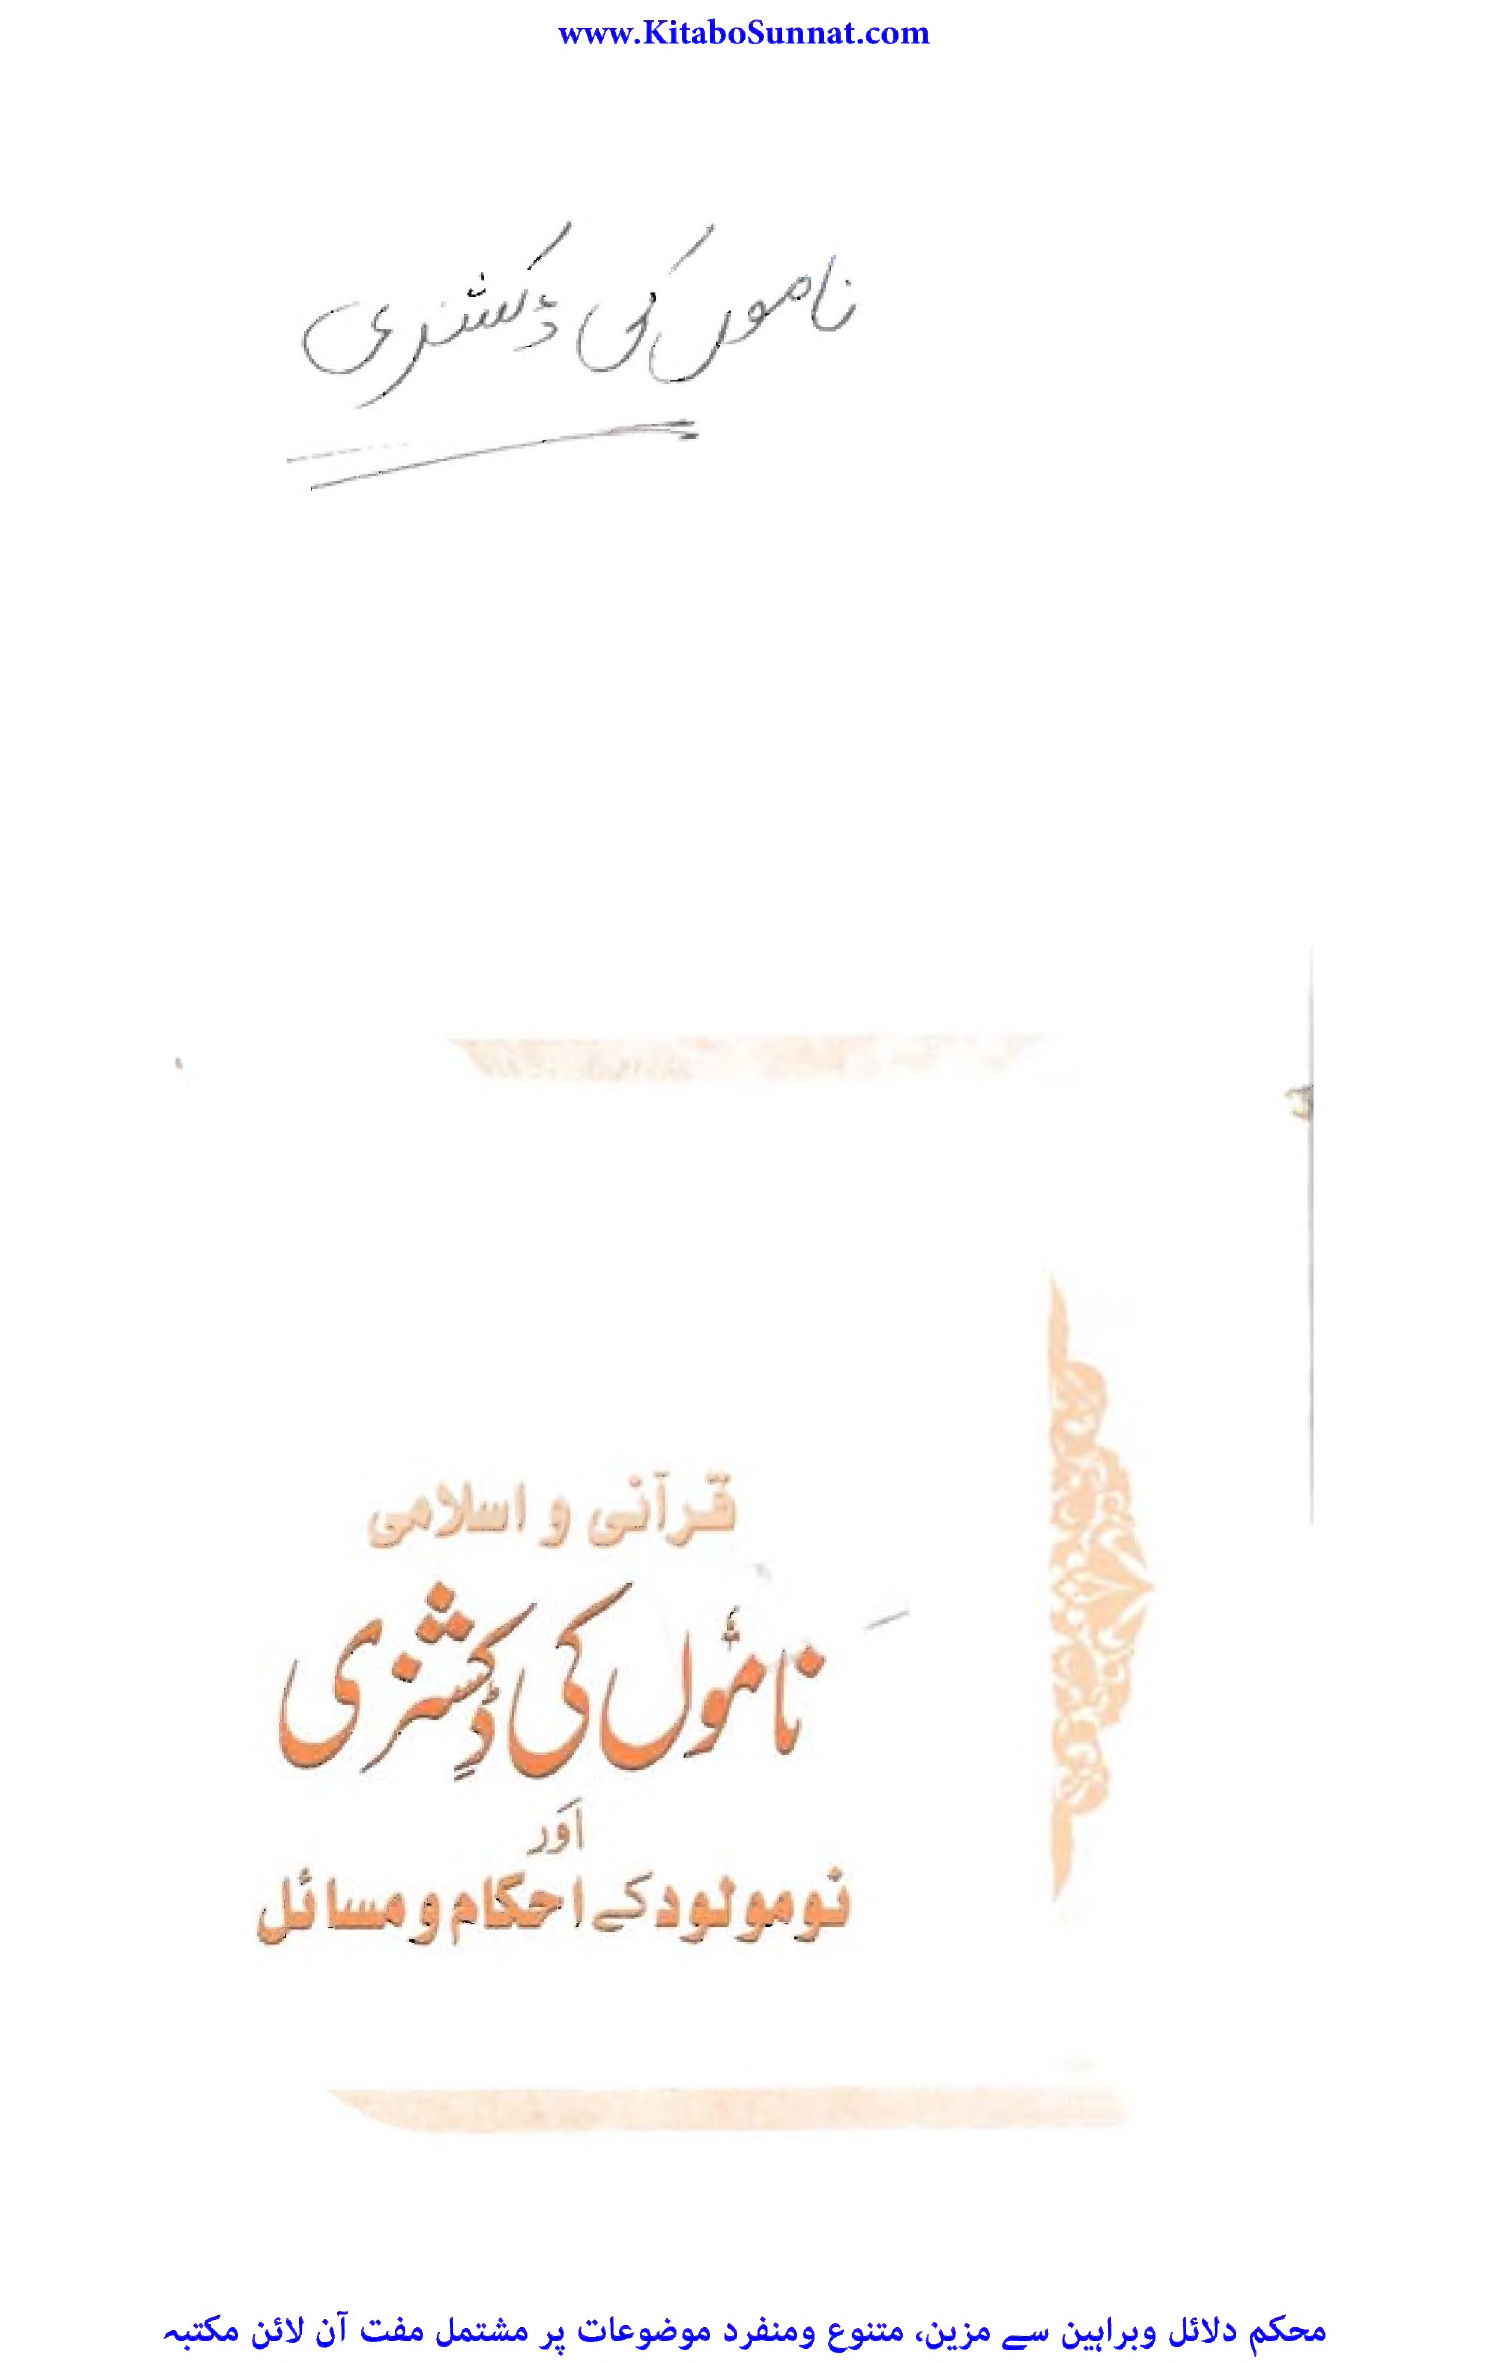 www.KitaboSunnat.com
ناموں کی ڈکشنری
قرآنی و اسلامی
ناموں کی ڈکشنری
اور
نومولود کے احکام و مسائل
محکم دلائل وبراہین سے مزین، متنوع ومنفرد موضوعات پر مشتمل مفت آن لائن مکتبہ